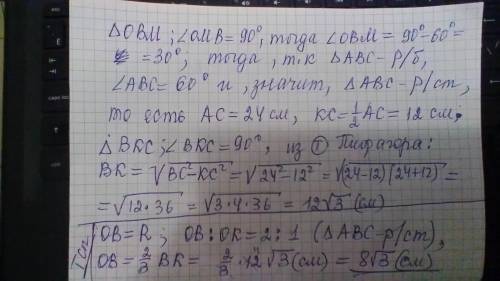 ΔOBM; ∠OMB=90°, тогда ∠OBM = 90°-60°=
=30°, тогда, т.к ΔABC-р/б,
∠ABC=60° и, значит, ΔABC-р/ст,
то есть AC=24 см, KC=½AC=12 см;
ΔBKC; ∠BKC=90°, из Ⓣ Пифагора:
BK=√BC²-KC²=√24²-12²=√(24-12)(24+12)=
=√12·36=√3·4·36=12√3(см)
Iсп OB=R; OB:OK=2:1 (ΔABC-р/ст),
OB=⅔BK= ⅔·12√3(см)=8√3(см)